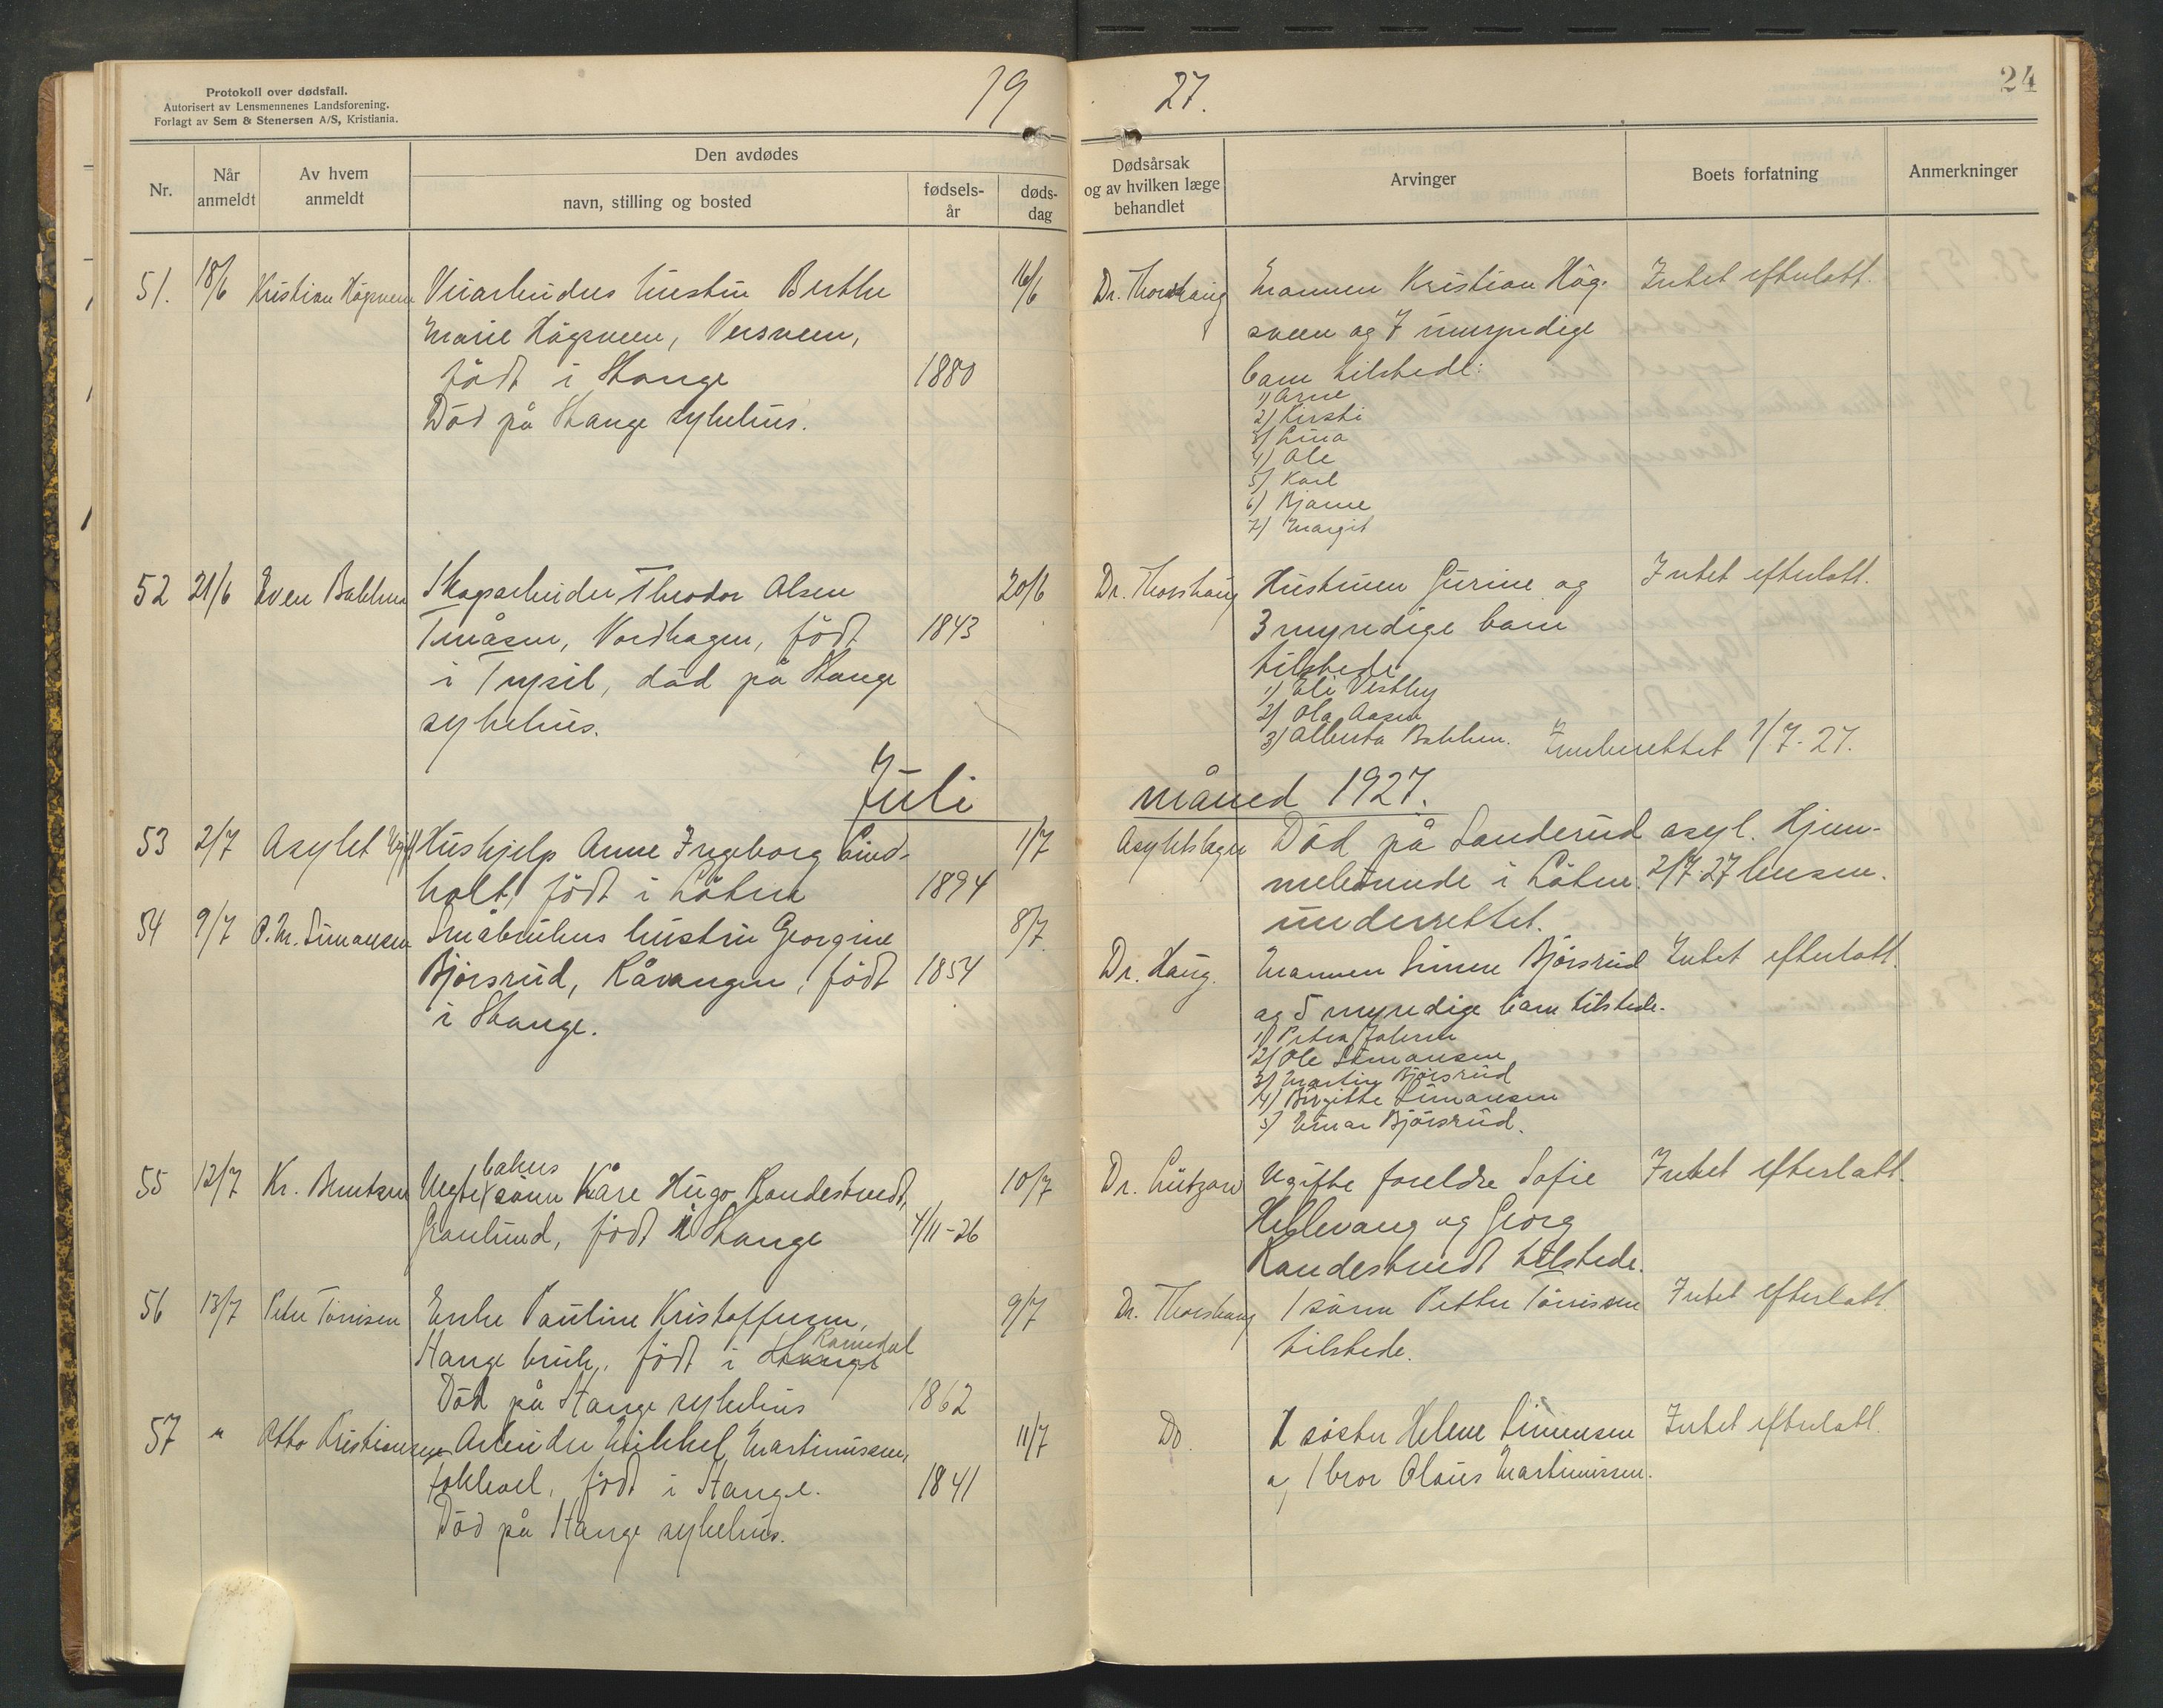 Protokoll over dødsfall.
Autorisert av Lensmennenes Landsforening.
Forlagt av Sem & Stenersen A/S, Kristiania.
19
27.
24
Nr.
Når anmeldt
Av hvem anmeldt
Den avdødes
navn, stilling og bosted
fødsels-år
døds-dag
Dødsårsak og av hvilken læge behandlet
Arvinger
Boets forfatning
Anmerkninger
51. 18/6 Kristian Högsveen Veiarbeiders hustru Berthe 16/6 Dr. Thorshaug Mannen Kristian Hög- Intet efterlatt.
Marie Högsveen, Versveen, sveen og 7 umyndige
född i Stange 1880 barn tilstede:
Död på Stange sykehus. 1) Arne
2) Kirsti
3) Lina
4) Ole
5) Karl
6) Bjarne
7) Margit
52 21/6 Even Bakken Skogarbeider Theodor Olsen 20/6 Dr. Thorshaug Hustruen Gurine og Intet efterlatt.
Tenåsen, Nordhagen, född 1843 3 myndige barn
i Trysil, död på Stange tilstede
sykehus. 1) Eli Vestby
2) Ola Aasen
3) Alberta Bakken. Innberettet 1/7-27.
Juli måned 1927.
53 2/7 Asylet Ugift Hushjelp Anne Ingeborg Lind- 1/7 Asyletslægen Död på Sanderud asyl. Hjem-
holt, född i Löten 1894 melende i Löten. 2/7-27 lensm.
underrettet.
54 9/7 O.M. Simensen Småbrukers hustru Georgine 8/7. Dr. Haug. Mannen Simen Björsrud Intet efterlatt.
Björsrud, Råvangen, född 1854 og 5 myndige barn tilstede.
i Stange. 1) Petra Johnsen
2) Ole Simensen
3) Martin Björsrud
4) Birgitte Simensen
5) Einar Björsrud.
55 12/7 Kr. Berntsen Uegte barns sönn Kåre Hugo Randestvedt, 10/7 Dr. Lützow Ugifte foreldre Sofie Intet efterlatt.
Granlund, född i Stange 4/11-26 Hellevang og Georg
Randestvedt tilstede.
56 13/7 Peter Tönnisen Enke Pauline Kristoffersen, 9/7 Dr. Thorshaug 1 sönn Petter Tönnissen Intet efterlatt.
Stange bruk, född i Stange Romedal tilstede.
Död på Stange sykehus 1862
57 " Otto Kristiansen Arbeider Mikkel Martinussen, 11/7 Do. 1 söster Helene Simensen Intet efterlatt.
född i Stange. 1841 og 1 bror Olaus Martinussen.
Död på Stange sykehus.